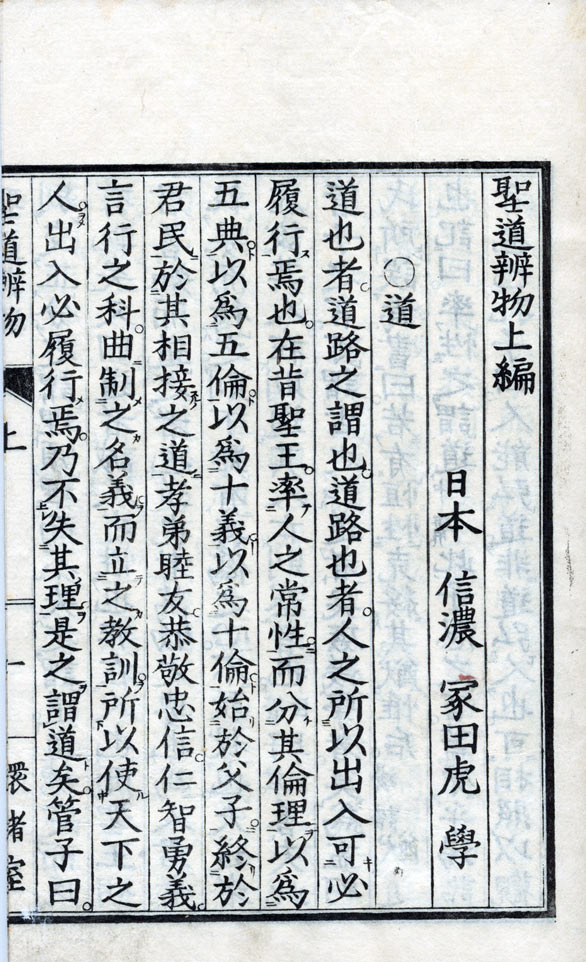 聖道辨物上編
日本 信濃 冢田虎 學
○道
道也者道路之謂也道路也者人之所以出入可必
履行焉也在昔聖王率人之常性而分其倫理以爲
五典以爲五倫以爲十義以爲十倫始於父子終於
君民於其相接之道孝弟睦友恭敬忠信仁智勇義
言行之科曲制之名義而立之教訓所以使天下之
人出入必履行焉乃不失其理是之謂道矣管子曰
聖道辨物 上 一 環堵室